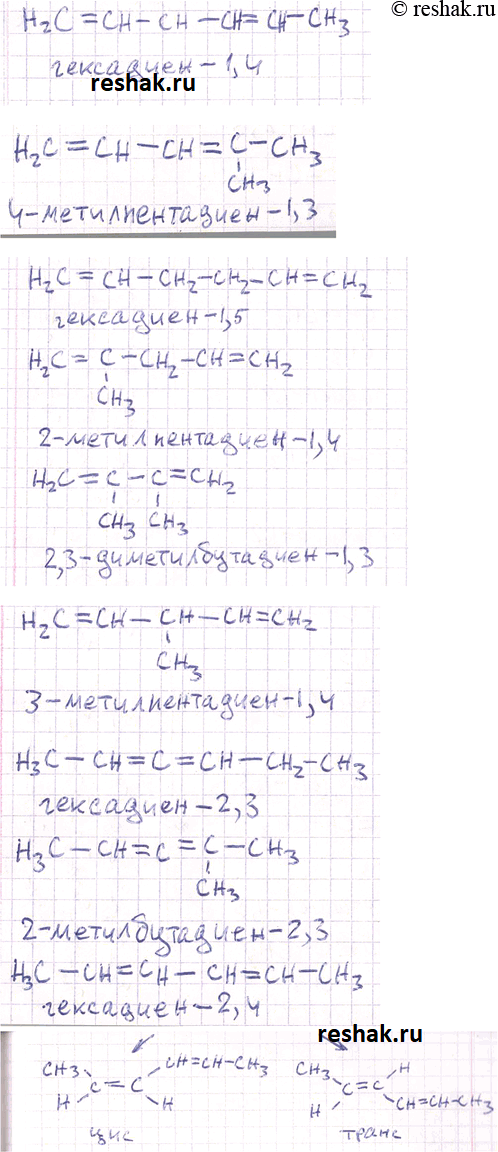 © reshak.ru
H₂C=CH-CH-CH=CH-CH₃
гексадиен-1,4
reshak.ru
H₂C=CH-CH=C-CH₃
CH₃
4-метилпентадиен-1,3
H₂C=CH-CH₂-CH₂-CH=CH₂
гексадиен-1,5
H₂C=C-CH₂-CH=CH₂
CH₃
2-метилпентадиен-1,4
H₂C=C-C=CH₂
CH₃ CH₃
2,3-диметилбутадиен-1,3
H₂C=CH-CH-CH=CH₂
CH₃
3-метилпентадиен-1,4
H₃C-CH=C=CH-CH₂-CH₃
гексадиен-2,3
H₃C-CH=C=C-CH₃
CH₃
2-метилбутадиен-2,3
H₃C-CH=CH-CH=CH-CH₃
гексадиен-2,4
reshak.ru
CH₃ CH=CH-CH₃ CH₃ H
C=C C=C
H H H CH=CH-CH₃
цис транс